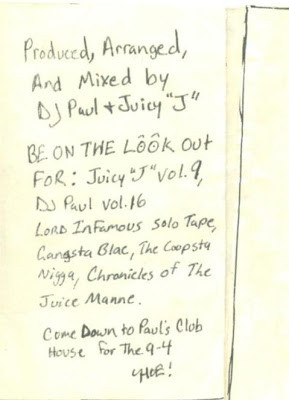 Produced, Arranged,
And Mixed by
DJ Paul + Juicy "J"
BE ON THE LÔÔK Out
FOR: Juicy "J" Vol. 9,
DJ Paul Vol. 16
LORD InFamous Solo Tape,
Gangsta Blac, The Coopsta
Nigga, Chronicles of The
Juice Manne.
Come Down to Paul's Club
House For The 9-4
HOE!